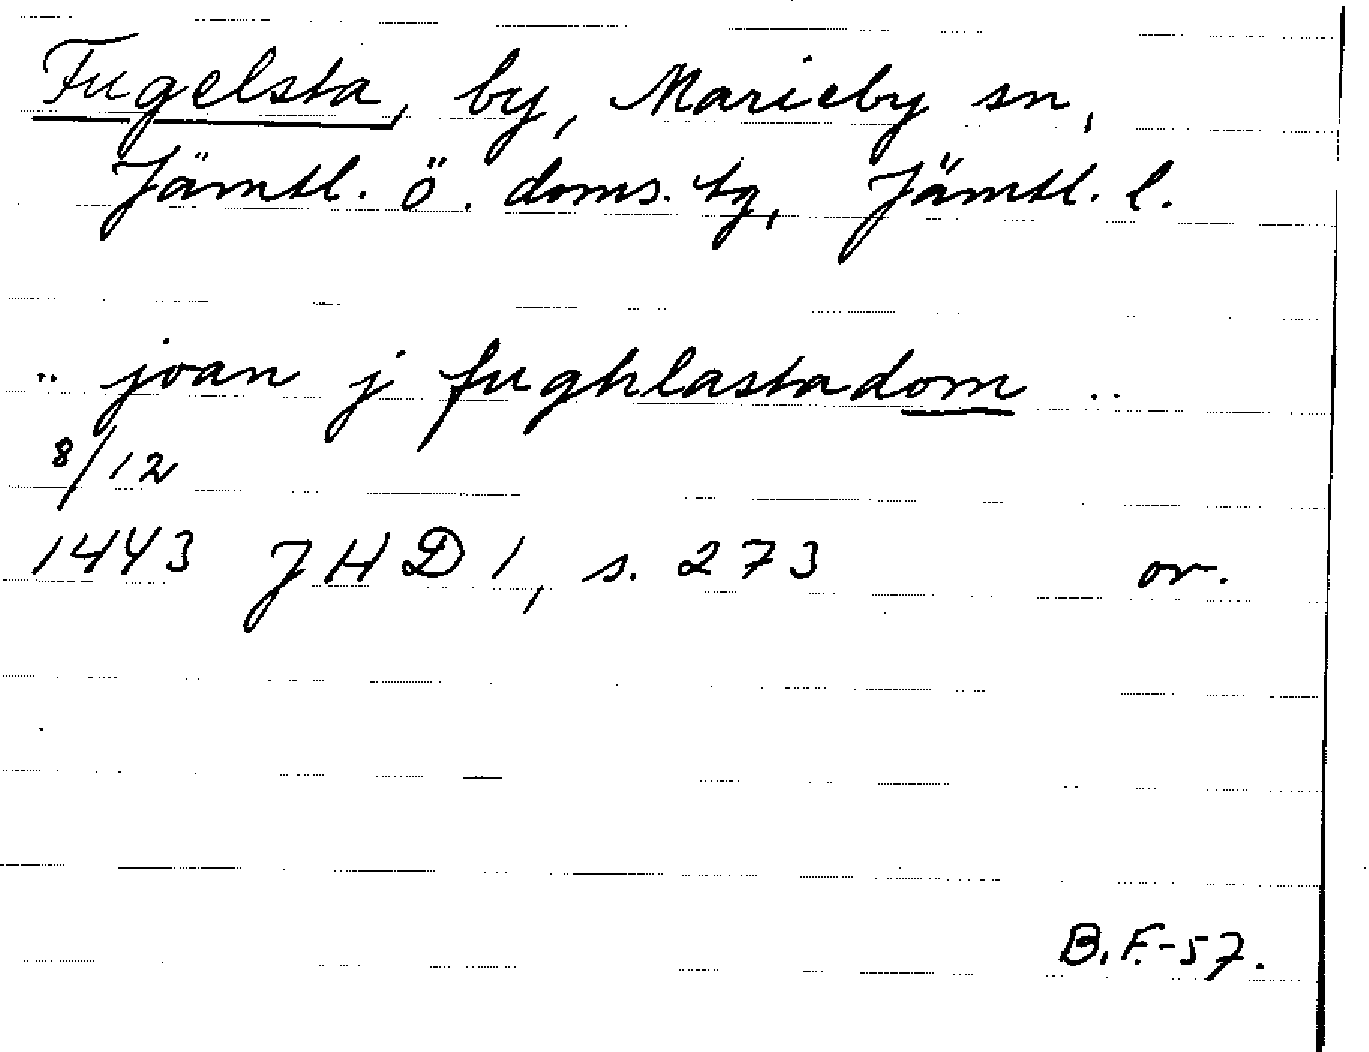 Fugelsta, by, Marieby sn,
Jämtl. ö. doms. tg, Jämtl. l.
.. joan j fughlastadom ..
8/12
1443 JHD 1, s. 273 or.
B.F.-57.